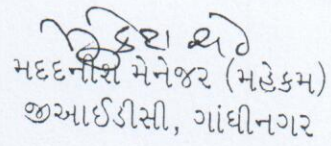 મદદનીશ મેનેજર (મહેકમ)
જીઆઈડીસી, ગાંધીનગર